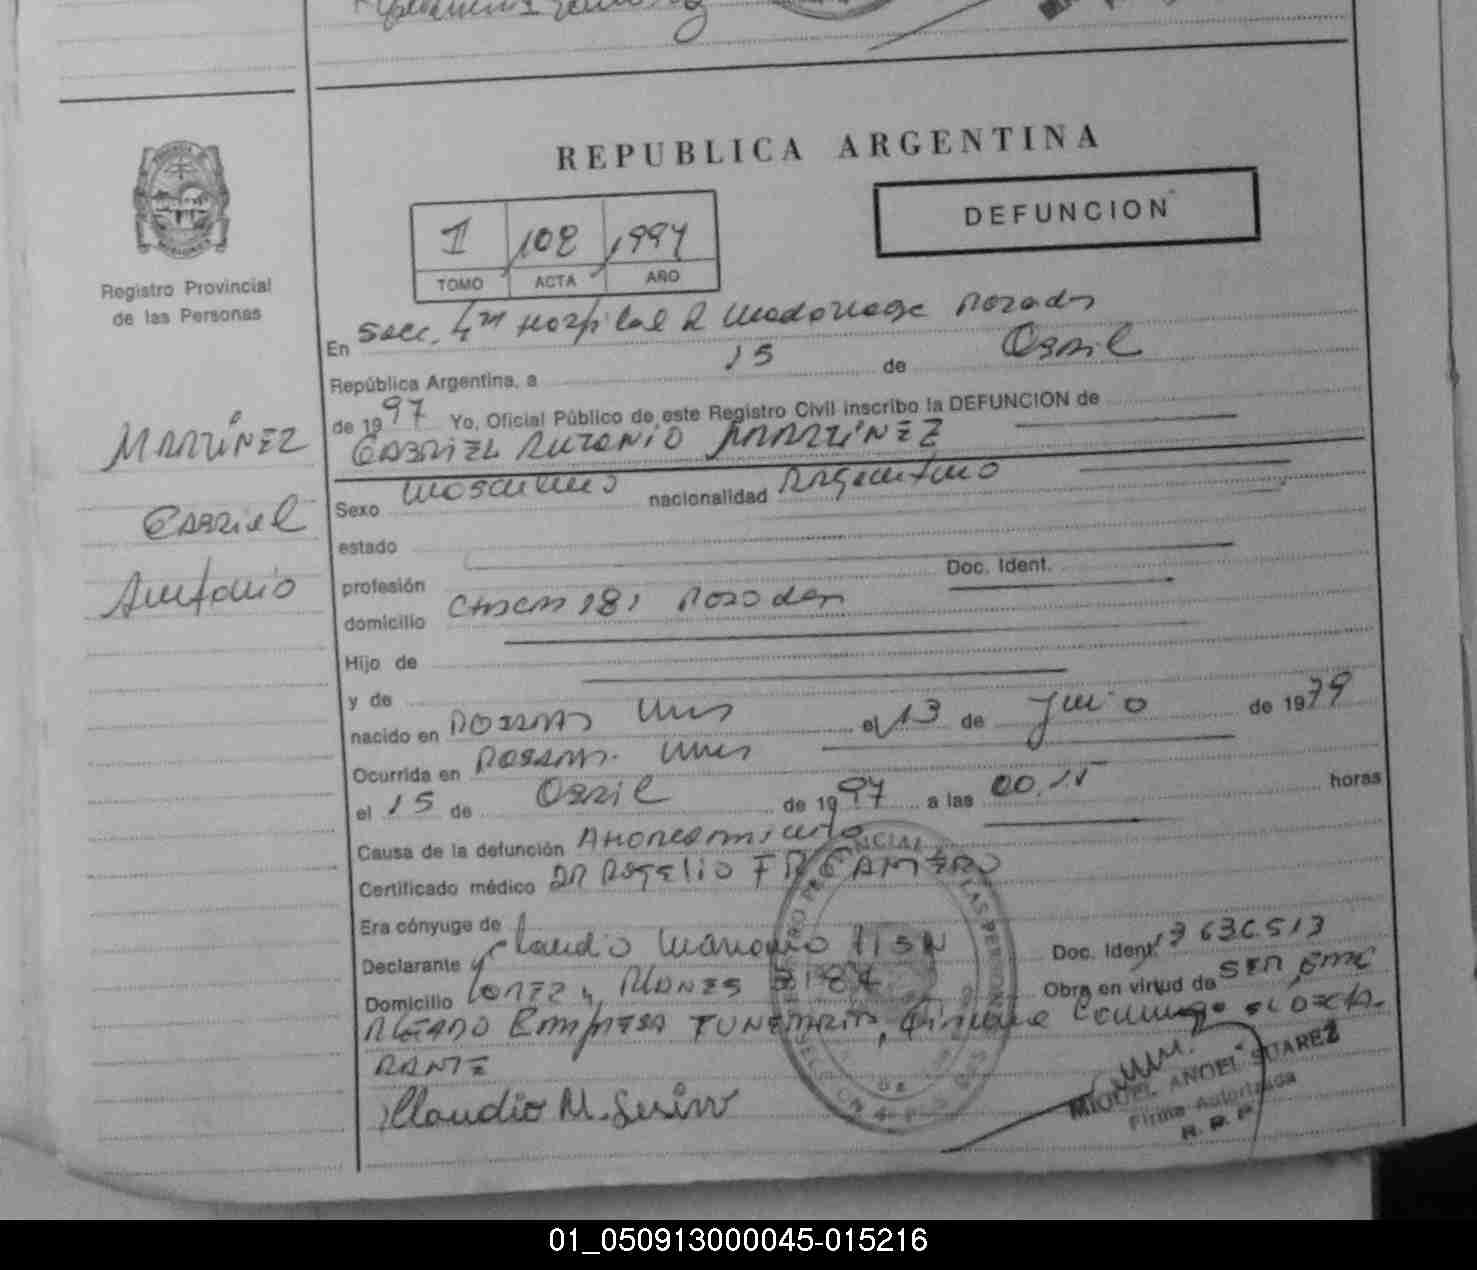 REPUBLICA ARGENTINA
DEFUNCION
1 108 1997
TOMO ACTA AÑO
Registro Provincial
de las Personas
En Secc. 4ta Hospital R Madariaga Posadas
República Argentina, a 15 de Abril
de 1997 Yo, Oficial Público de este Registro Civil inscribo la DEFUNCION de
GABRIEL ANTONIO MARTINEZ
MARTINEZ
Gabriel
Antonio
Sexo Masculino nacionalidad Argentino
estado
profesión Doc. Ident.
domicilio Chacra 181 Posadas
Hijo de
y de
nacido en Posadas Mnes el 13 de Junio de 1979
Ocurrida en Posadas. Mnes
el 15 de Abril de 1997 a las 00.15 horas
Causa de la defunción Ahorcamiento
Certificado médico DR ROGELIO FR CAMERO
Era cónyuge de
Declarante Claudio Mariano Doc. Ident.
Domicilio Lopez y Planes 3184 Obra en virtud de SER EMPLEADO EMPRESA FUNEBRE, firma conmigo el DECLARANTE
Claudio M.
MIGUEL ANGEL SUAREZ
Firma Autorizada
R. P. P.
01_050913000045-015216